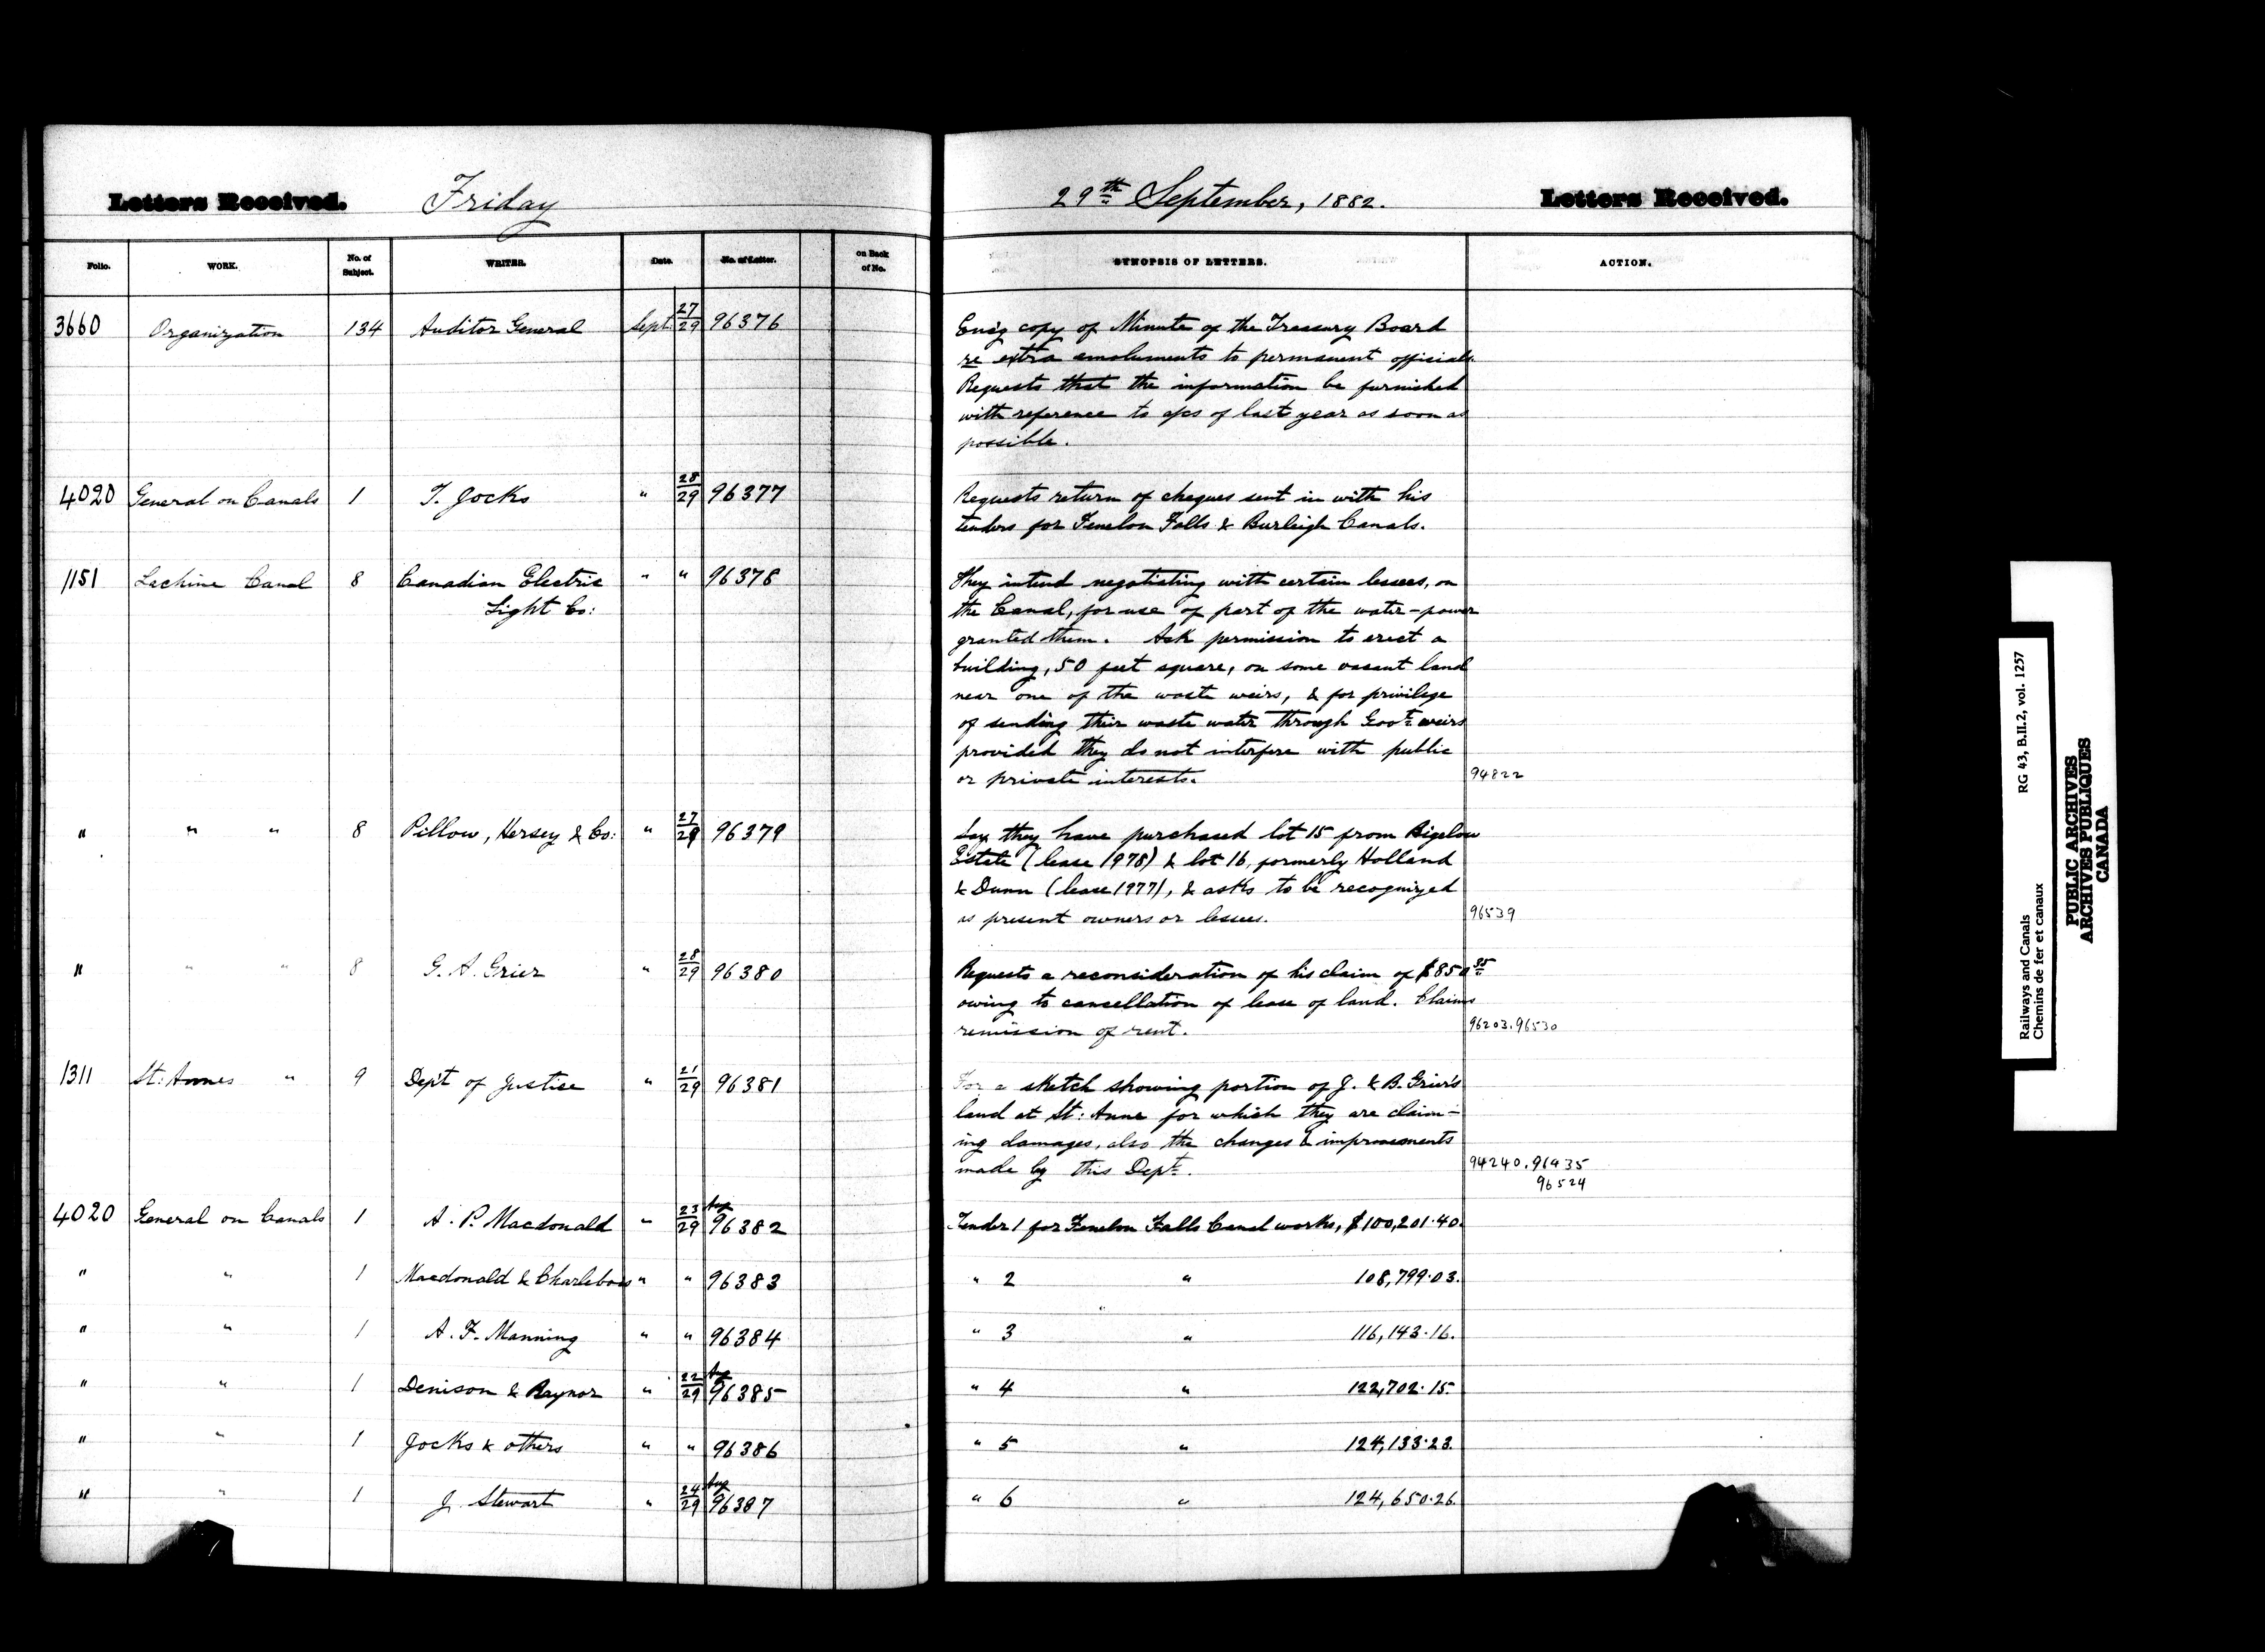 Letters Received. Friday
29th September, 1882. Letters Received.
Folio. WORK. No. of Subject. WRITER. Date. No. of Letter. on Back of No.
SYNOPSIS OF LETTERS. ACTION.
3660 Organization 134 Auditor General Sept. 27/29 96376
Enc'g copy of Minute of the Treasury Board
re extra emoluments to permanent officials.
Requests that the information be furnished
with reference to a/cs of last year as soon as
possible.
4020 General on Canals 1 T. Jocks " 28/29 96377
Requests return of cheques sent in with his
tenders for Fenelon Falls & Burleigh Canals.
1151 Lachine Canal 8 Canadian Electric " " 96378
Light Co:
They intend negotiating with certain lessees, on
the Canal, for use of part of the water-power
granted them. Ask permission to erect a
building, 50 feet square, on some vacant land
near one of the waste weirs, & for privilege
of sending their waste water through Govt. weirs
provided they do not interfere with public
or private interests. 94822
" " " 8 Pillow, Hersey & Co: " 27/29 96379
Say they have purchased lot 15 from Bigelow
Estate (lease 1978) & lot 16, formerly Holland
& Dunn (lease 1977), & asks to be recognized
as present owners or lessees. 96539
" " " 8 G. A. Grier " 28/29 96380
Requests a reconsideration of his claim of $850
owing to cancellation of lease of land. Claims
remission of rent. 96203. 96530
1311 St: Annes " 9 Dep't of Justice " 21/29 96381
For a sketch showing portion of J. & B. Grier's
land at St: Anne for which they are claim-
ing damages, also the changes & improvements
made by this Dept. 94240.
96524
4020 General on Canals 1 A. P. Macdonald " 23/29 Aug 96382
Tender 1 for Fenelon Falls Canal works, $100,201.40.
" " 1 Macdonald & Charlebois " " 96383
" 2 " 108,799.03.
" " 1 A. F. Manning " " 96384
" 3 " 116,143.16.
" " 1 Denison & Raynor " 22/29 Aug 96385
" 4 " 122,702.15.
" " 1 Jocks & others " " 96386
" 5 " 124,133.23.
" " 1 J Stewart " 24/29 Aug 96387
" 6 " 124,650.26.
Railways and Canals RG 43, B.II.2, vol. 1257
Chemins de fer et canaux
PUBLIC ARCHIVES
ARCHIVES PUBLIQUES
CANADA